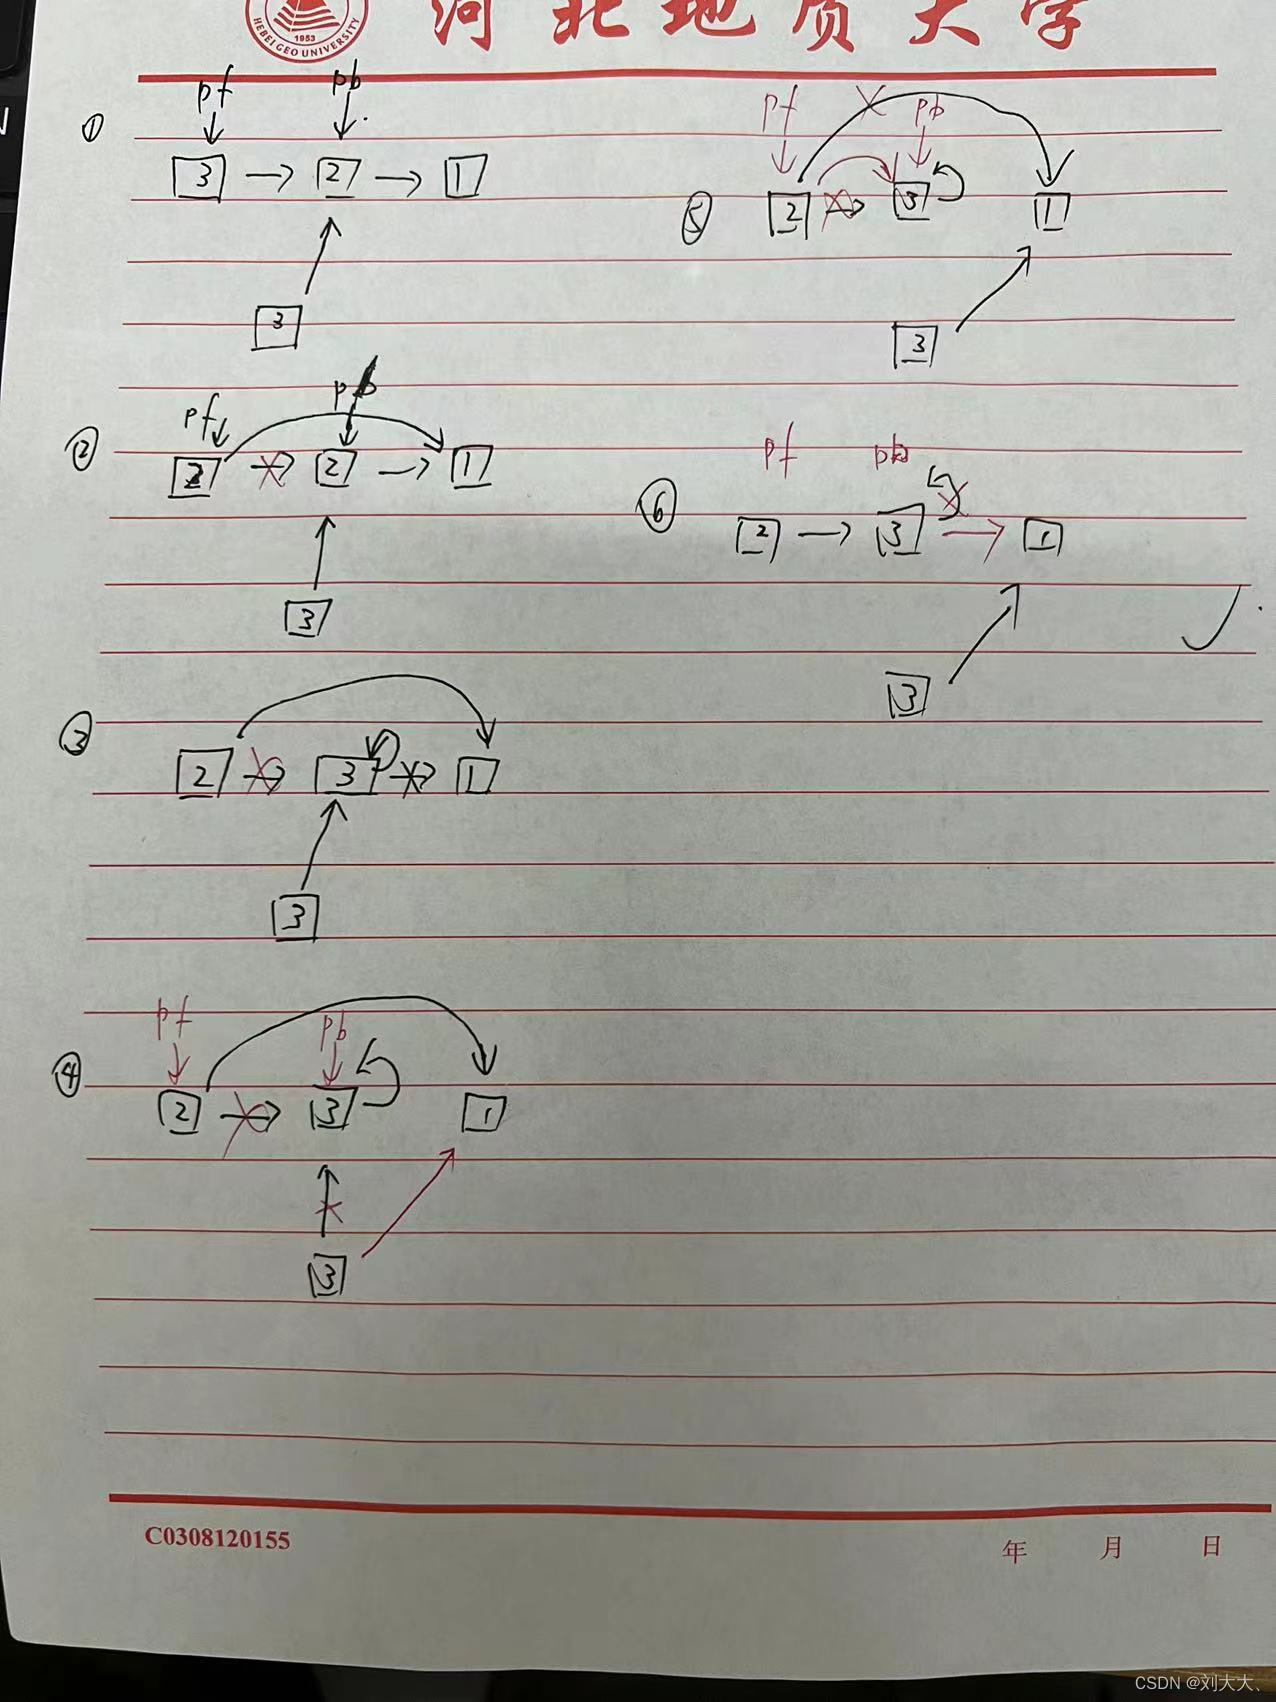 河北地质大学
HEBEI GEO UNIVERSITY
1953
① pf pb
3 → 2 → 1
3
② pf pb
2 → 2 → 1
3
③
2 → 3 → 1
3
④ pf pb
2 → 3 1
3
⑤ pf pb
2 → 3 1
3
⑥ pf pb
2 → 3 → 1
3
C0308120155
年 月 日
CSDN @刘大大、